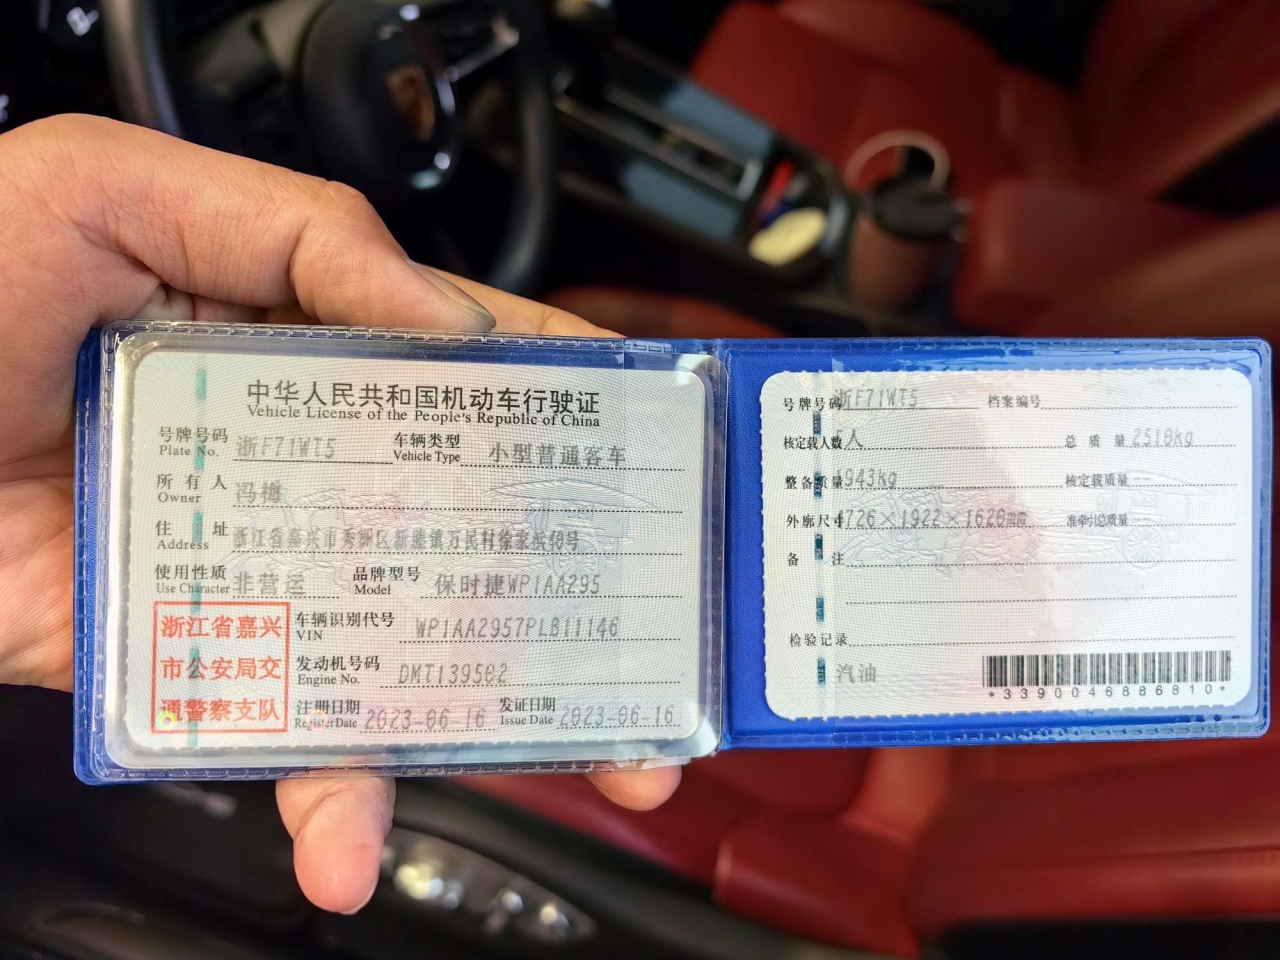 中华人民共和国机动车行驶证
Vehicle License of the People's Republic of China
号牌号码 浙F71WT5 车辆类型 小型普通客车
Plate No. Vehicle Type
所有人 冯梅
Owner
住址 浙江省嘉兴市秀洲区新塍镇万民村徐家浜40号
Address
使用性质 非营运 品牌型号 保时捷WP1AA295
Use Character Model
浙江省嘉兴
市公安局交
通警察支队
车辆识别代号 WP1AA2957PLB11146
VIN
发动机号码 DMT139502
Engine No.
注册日期 2023-06-16 发证日期 2023-06-16
Register Date Issue Date
号牌号码 浙F71WT5 档案编号
核定载人数 5人 总质量 2510kg
整备质量 1943kg 核定载质量 --
外廓尺寸 4726×1922×1626mm 准牵引总质量 --
备注
检验记录
汽油
*3390046886810*